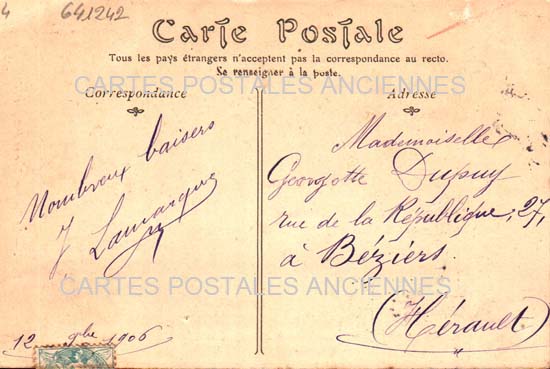 4 641242
Carte Postale
Tous les pays étrangers n'acceptent pas la correspondance au recto.
Se renseigner à la poste.
CARTES POSTALES ANCIENNES
Correspondance
Adresse
Nombreux baisers
J Lamarque
Mademoiselle
Georgette Dupuy
rue de la République, 27,
à Béziers
CARTES POSTALES ANCIENNES
(Hérault)
12 9bre 1906